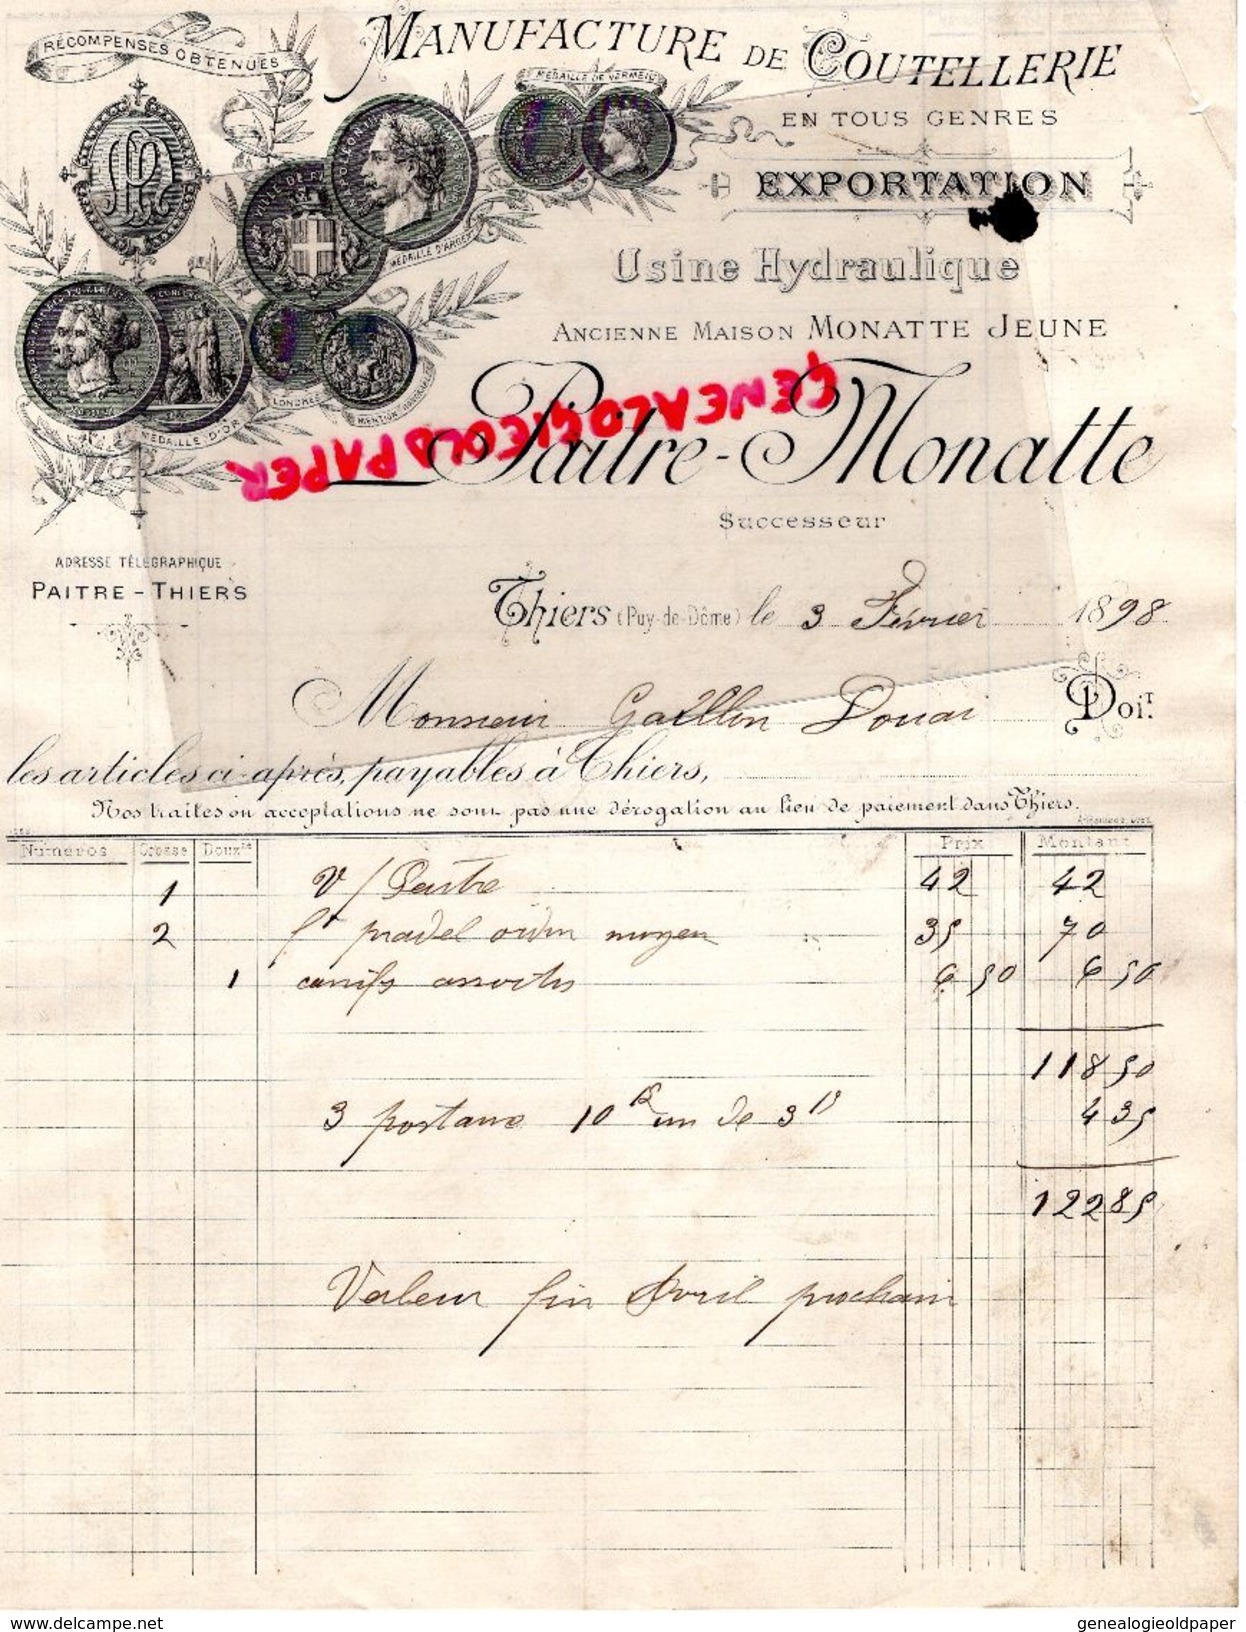 RÉCOMPENSES OBTENUES
MANUFACTURE DE COUTELLERIE
MÉDAILLE DE VERMEIL
EN TOUS GENRES
EXPORTATION
MÉDAILLE D'ARGENT
Usine Hydraulique
ANCIENNE MAISON MONATTE JEUNE
LONDRES
MENTION HONORABLE
MÉDAILLE D'OR
GENEALOGIEOLDPAPER
Paitre-Monatte
Successeur
ADRESSE TÉLÉGRAPHIQUE
PAITRE - THIERS
Thiers (Puy-de-Dôme) le 3 Février 1898
Monsieur Douai Doit.
les articles ci-après, payables à Thiers,
Nos traites ou acceptations ne sont pas une dérogation au lieu de paiement dans Thiers.
Numéros Grosse Douzne Prix Montant
1 V/ 42 42
2 pradel ordin moyen 35 70
1 canifs assortis 6 50 6 50
118 50
3 postaux 10 K un de 3 K 4 35
122 85
Valeur fin Avril prochain
www.delcampe.net
genealogieoldpaper